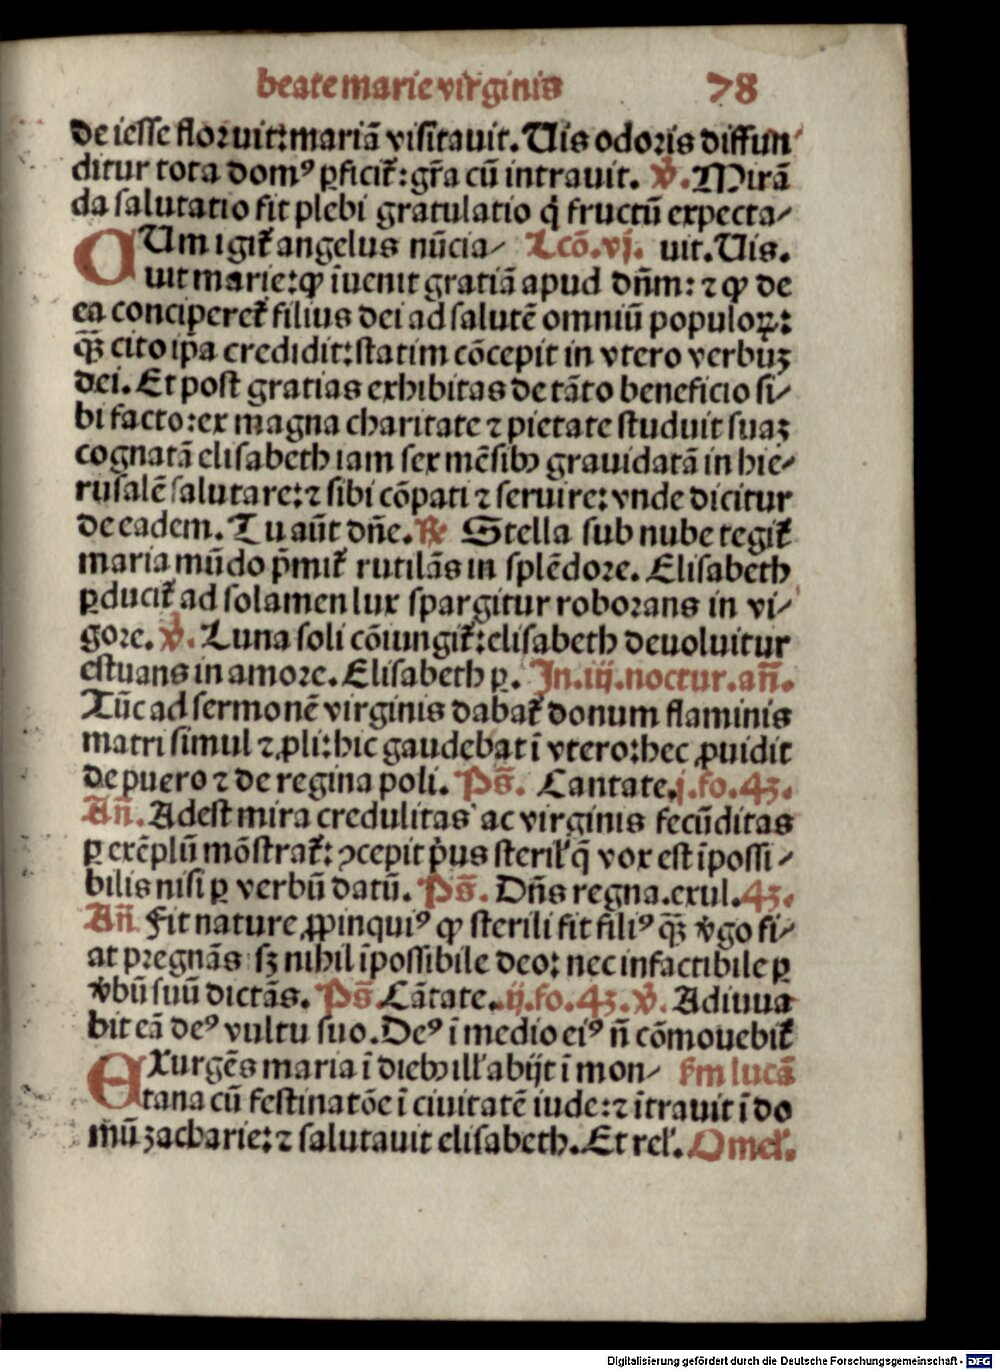 beate marie virginis 78
de iesse floruit: mariā visitauit. Uis odoris diffun
ditur tota domꝰ ꝑficit᷑: gr̄a cū intrauit. V̓. Mirā
da salutatio fit plebi gratulatio q̇ fructū expecta⸗
CUm igit᷑ angelus nūcia⸗ Lcō. vj. uit. Uis.
uit marie: ꝙ īuenit gratiā apud dn̄m: ⁊ ꝙ de
ea conciperet᷑ filius dei ad salutē omniū populoꝝ:
qꝫ̄ cito ip̄a credidit: statim cōcepit in vtero verbuꝫ
dei. Et post gratias exhibitas de tāto beneficio si⸗
bi facto: ex magna charitate ⁊ pietate studuit suaꝫ
cognatā elisabeth iam sex mēsibꝫ grauidatā in hie⸗
rusalē salutare: ⁊ sibi cōpati ⁊ seruire: vnde dicitur
de eadem. Tu aūt dn̄e. ℞ Stella sub nube tegit᷑
maria mūdo p̄mit᷑ rutilās in splēdore. Elisabeth
ꝑducit᷑ ad solamen lux spargitur roborans in vi⸗
gore. V̓. Luna soli cōiungit᷑: elisabeth deuoluitur
estuans in amore. Elisabeth ꝑ. In. iij. noctur. an̄.
Tūc ad sermonē virginis dabat᷑ donum flaminis
matri simul ⁊ ꝓli: hic gaudebat ī vtero: hec ꝓuidit
de puero ⁊ de regina poli. Ps̄. Cantate. j. fo. 43.
An̄. Adest mira credulitas ac virginis fecūditas
ꝑ exēplū mōstrat᷑: ꝯcepit pͥus steril̓ q̄ vox est īpossi⸗
bilis nisi ꝑ verbū datū. Ps̄. Dn̄s regna. exul. 43.
An̄ Fit nature ꝓpinquiꝰ ꝙ sterili fit filiꝰ qꝫ̄ v̓go fi⸗
at pregnās sꝫ nihil īpossibile deo: nec infactibile ꝑ
v̓bū suū dictās. Ps̄. Cātate. ij. fo. 43. V̓. Adiuua
bit eā deꝰ vultu suo. Deꝰ ī medio eiꝰ n̄ cōmouebit᷑
EXurgēs maria ī diebꝫ ill̓ abijt ī mon⸗ km̄ lucā
tana cū festinatōe ī ciuitatē iude: ⁊ ītrauit ī do
mū zacharie: ⁊ salutauit elisabeth. Et rel̓. Omel̓.
Digitalisierung gefördert durch die Deutsche Forschungsgemeinschaft - DFG